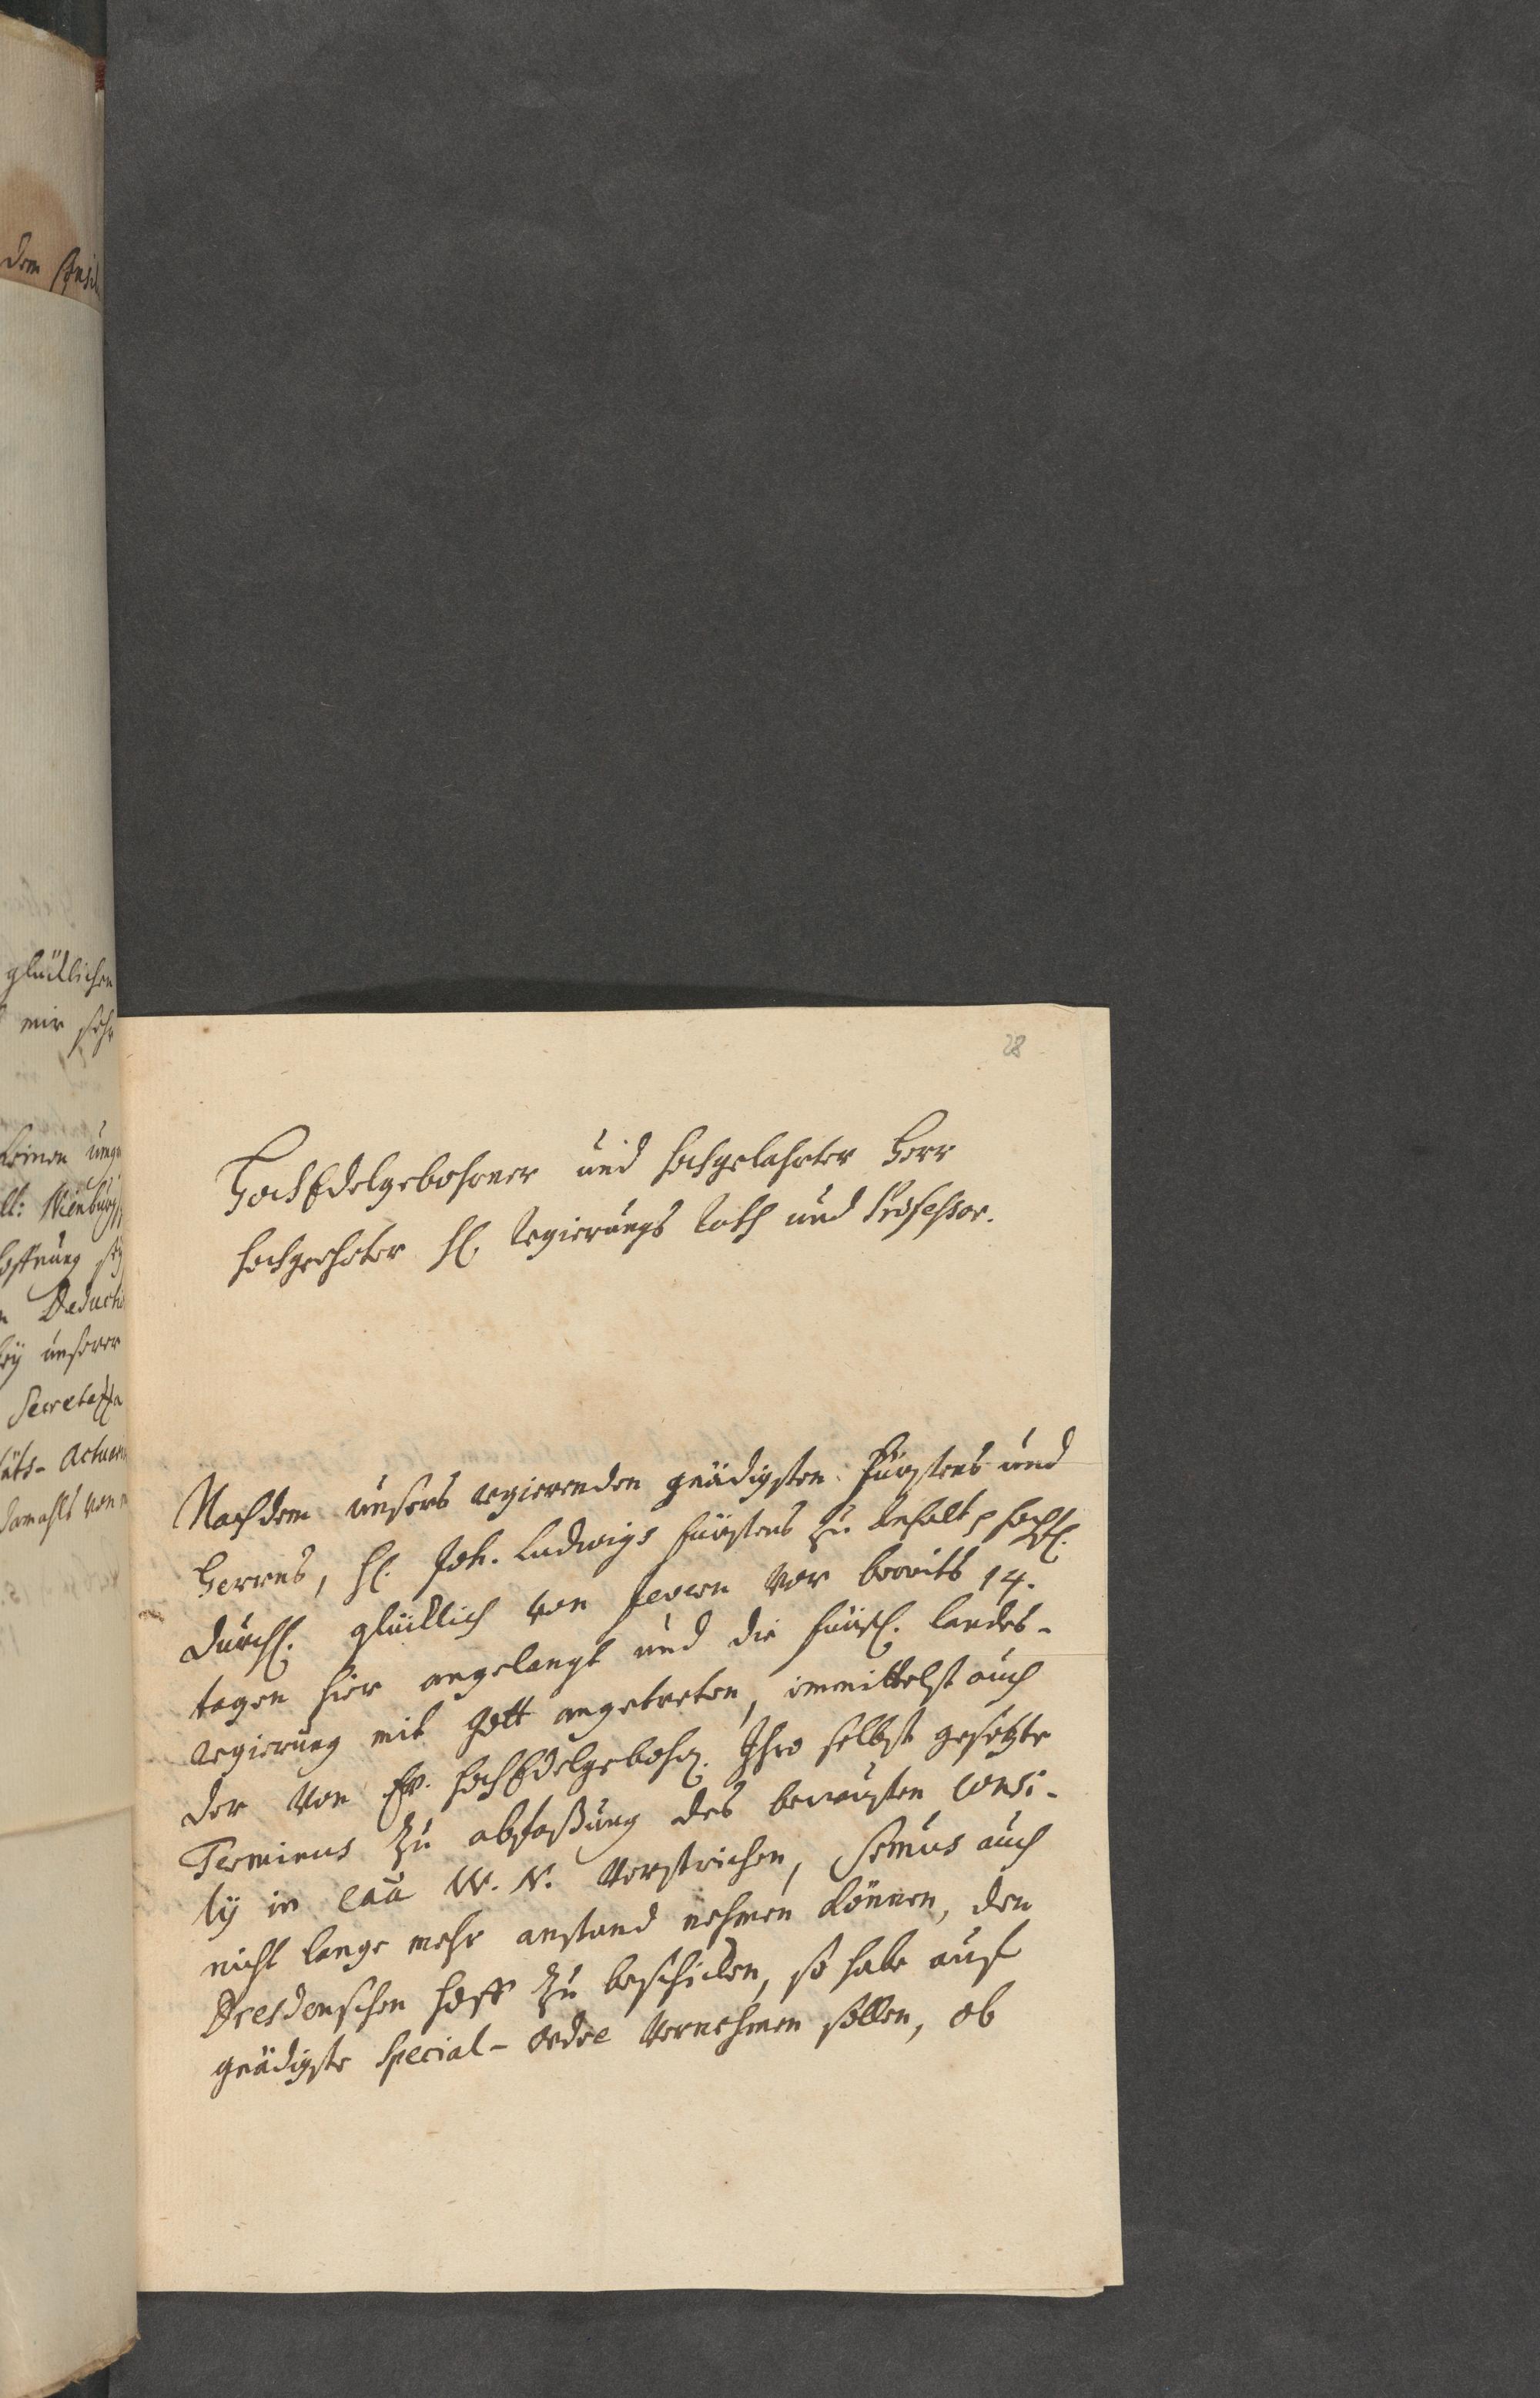 dem
glücklichen
mir sehr
keinen
Nienburg
Hoffnung
Deducti
bey unserer
Secreta
Actuari
damahls von
28
HochEdelgebohrner und hochgelahrter Herr
hochgeehrter H. Regierungs Rath und Professor.
Nachdem unsers regierenden gnädigsten Fürstens und
Herrns, H. Joh. Ludwigs Fürstens zu Anhalt p hochf.
Durchl. glücklich von Jevern vor bereits 14.
tagen hier angelangt und die fürstl. Landes-
regierung mit Gott angetreten, immittelst auch
der von Ew. HochEdelgebohr. Ihro selbst gesetzte
Terminus zu abfaßung des bewusten Consi-
lij in caũ W. N. verstrichen, Semus auch
nicht lange mehr anstand nehmen können, den
Dresdenschen Hoff zu beschicken, so habe auf
gnädigste Special-Ordre vernehmen sollen, ob